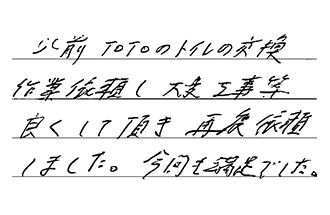 以前 TOTOのトイレの交換
作業依頼し 大変 工事等
良くして頂き 再度 依頼
しました。今回も満足でした。